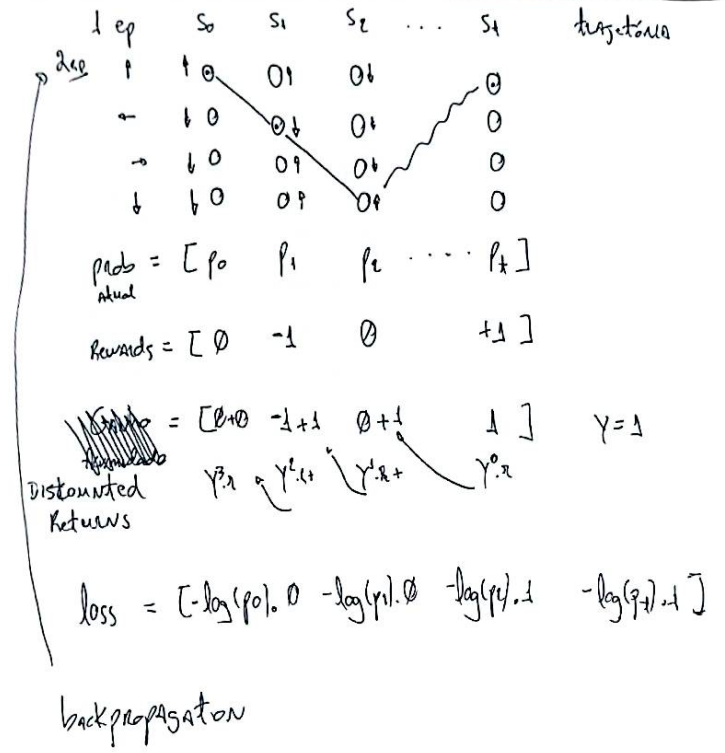 1 ep S0 S1 S2 ... St trajetória
2 ep ↑ ↑0 0↑ 0↓ 0
← ↓0 0↓ 0↓ 0
→ ↓0 0↑ 0↓ 0
↓ ↓0 0↑ 0↑ 0
prob = [p0 p1 p2 .... pt]
Atual
Rewards = [0 -1 0 +1]
= [0+0 -1+1 0+1 1] γ=1
Acumulado
Discounted γ³.r γ².r+ γ¹.r+ γ⁰.r
Returns
loss = [-log(p0).0 -log(p1).0 -log(p2).1 -log(pt).1]
backpropagation